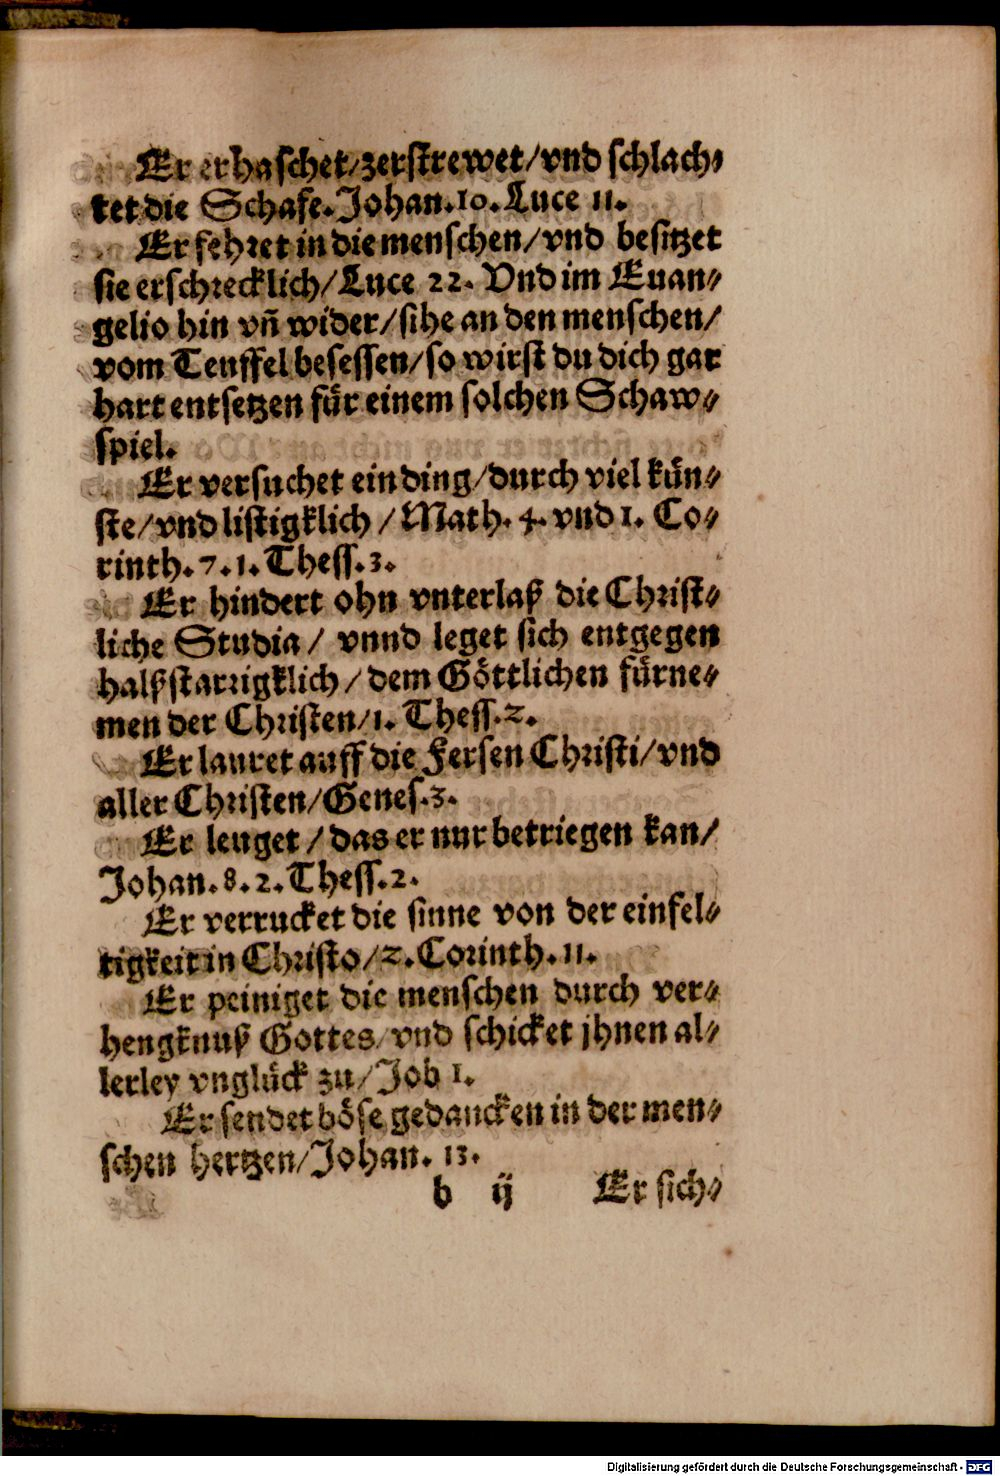 Er erhaschet/zerstrewet/vnd schlach⸗
tet die Schafe. Johan. 10. Luce 11.
Er fehret in die menschen/vnd besitzet
sie erschrecklich/Luce 22. Vnd im Euan⸗
gelio hin vñ wider/sihe an den menschen/
vom Teuffel besessen/so wirst du dich gar
hart entsetzen für einem solchen Schaw⸗
spiel.
Er versuchet ein ding/durch viel kün⸗
ste/vnd listigklich/Math. 4. vnd 1. Co⸗
rinth. 7. 1. Thess. 3.
Er hindert ohn vnterlaß die Christ⸗
liche Studia/ vnnd leget sich entgegen
halßstarrigklich/dem Göttlichen fürne⸗
men der Christen/1. Thess. 2.
Er lauret auff die Fersen Christi/vnd
aller Christen/Genes. 3.
Er leuget/das er nur betriegen kan/
Johan. 8. 2. Thess. 2.
Er verrucket die sinne von der einfel⸗
tigkeit in Christo/2. Corinth. 11.
Er peiniget die menschen durch ver⸗
hengknuß Gottes/vnd schicket jhnen al⸗
lerley vnglück zu/Job 1.
Er sendet böse gedancken in der men⸗
schen hertzen/Johan. 13.
b ij Er sich⸗
Digitalisierung gefördert durch die Deutsche Forschungsgemeinschaft - DFG